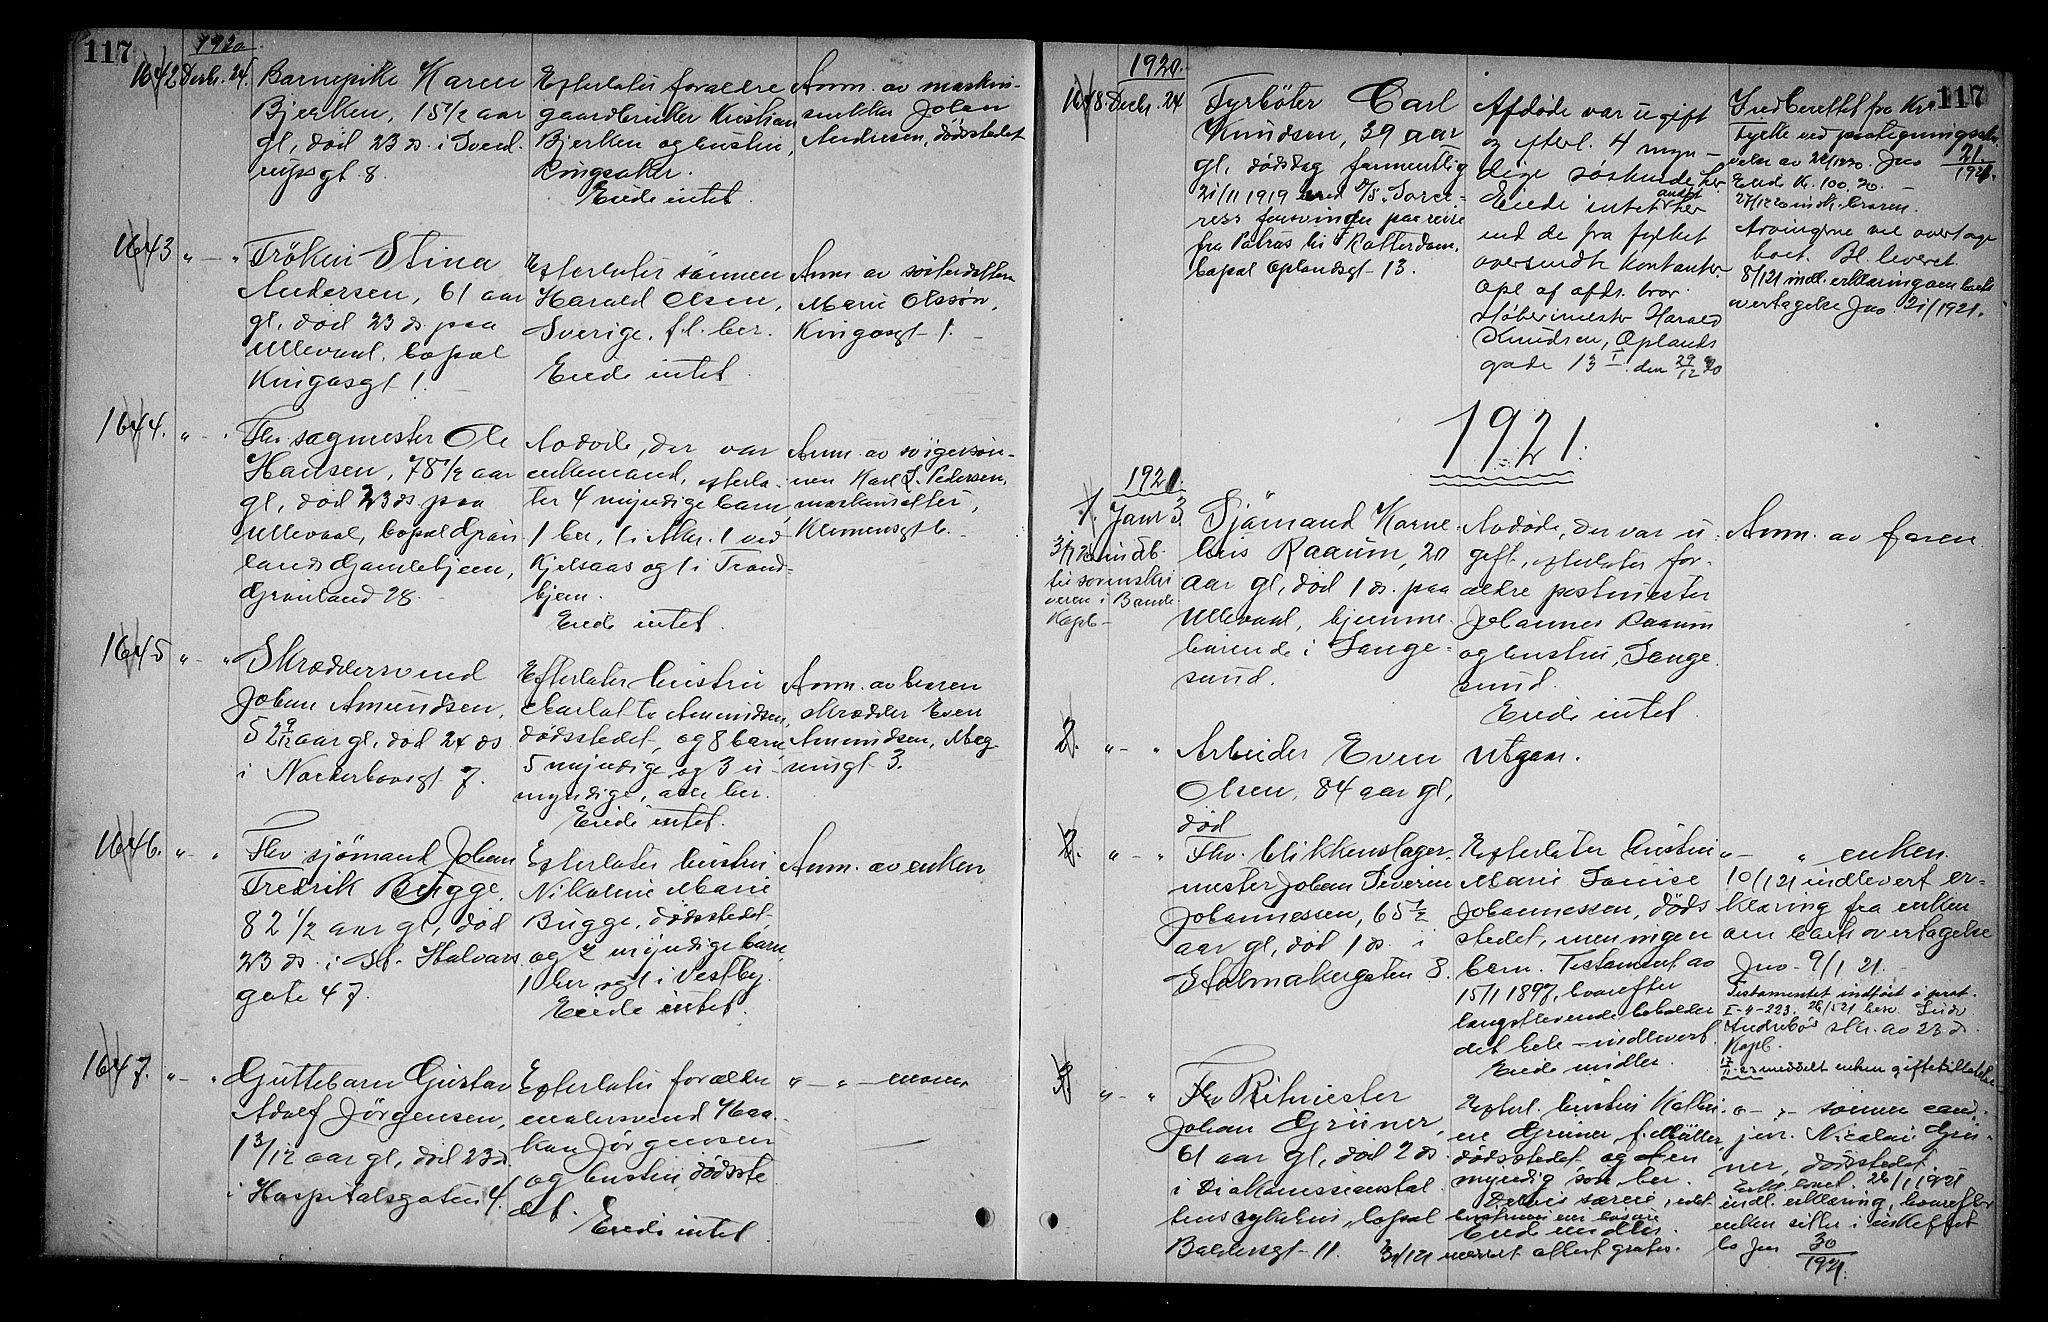 117
1920
1642 Decbr. 24.
Barnepike Karen
Bjerken, 15 1/2 aar
gl, död 23 ds. i Svend-
rupsgt 8.
Efterlater forældre
gaardbruker Kristian
Bjerken og hustru,
Ringsaker.
Eiede intet.
Anm. av maskin-
snekker Johan
Andresen, dödsstedet
1643 " — "
Fröken Stina
Andersen, 61 aar
gl, död 23 ds paa
Ullevaal, bopæl
Kingosgt 1.
Efterlater sönnen
Harald Olsen,
Sverige, f. l. ber.
Eiede intet.
Anm. av sösterdatter
Marie Olssön,
Kingosgt 1.
1644. " — "
Fhv sagmester Ole
Hansen, 78 1/2 aar
gl, död 23 ds paa
Ullevaal, bopæl Grön
lands Gamlehjem,
Grönland 28.
Avdöde, der var
enkemand, efterla-
ter 4 myndige barn,
1 her, 1 i Aker, 1 ved
Kjelsaas og 1 i Trond-
hjem.
Eiede intet.
Anm. av svigersön-
nen Karl L. Pedersen,
Klemensgt 6.
1645 " — "
Skræddersvend
Johan Amundsen,
52 9/12 aar gl, död 24 ds
i Norderhovsgt 7.
Efterlater hustru
Charlotte Amundsen,
dödsstedet, og 8 barn
5 myndige og 3 u-
myndige, alle her.
Eiede intet.
Anm. av broren
skrædder Even
Amundsen, Mog
ensgt 3.
1646. " — "
Fhv. sjömand Johan
Fredrik Bugge,
82 1/2 aar gl, död
23 ds. i St. Halvards
gate 47.
Efterlater hustru
Nikoline Marie
Bugge, dödsstedet,
og 2 myndige barn,
1 her og 1 i Vestby.
Eiede intet.
Anm. av enken
1647. " — "
Guttebarn Gustav
Adolf Jörgensen,
1 3/12 aar gl, död 23 ds.
i Hospitalsgaten 4.
Efterlater forældre
malersvend Haa-
kon Jörgensen
og hustru, dödsste
det.
Eiede intet.
" — " — moren
117
1920.
1648 Decbr. 24
Fyrböter Carl
Knudsen, 39 aar
gl, dödsdag formentlig
21/11 1919 med D/S
forsvinden paa reise
fra Patras til Rotterdam,
bopæl Oplandsgt 13.
Afdöde var ugift
og efterl. 4 myn-
dige söskende her
Eiede intet andet her
end de fra fylket
oversendte kontanter.
Opl af afds. bror
Stöberimester Harald
Knudsen, Oplands
gade 13 I. den 29/12 20
Indberettet fra Kra.
Fylke ved paategningsskri-
velse av 22/12 20. Jno 21/1921.
Eiede Kr. 100,20.
Arvingerne vil overtage
boet. Bl. leveret.
8/1 21 indl. erklæring om boets
overtagelse Jno. 21/1921.
1921.
1921.
1. Janr 3.
3/1 20 indb.
til sorenskri
veren i Bamble
Kopb
Sjömand Korne-
lius Raaum, 20
aar gl, död 1 ds. paa
Ullevaal, hjemme-
hörende i Lange-
sund.
Avdöde, der var u-
gift, efterlater for-
ældre postmester
Johannes Raaum
og hustru, Lange-
sund.
Eiede intet.
Anm. av faren
2. " — "
Arbeider Even
Olsen, 84 aar gl,
död
Utgaar.
2. " — "
Fhv. blikkenslager-
mester Johan Severin
Johannessen, 65 1/2
aar gl, död 1 ds. i
Stolmakergaten 8.
Efterlater hustru
Marie Louise
Johannessen, döds
stedet, men ingen
barn. Testament av
15/1 1897, hvorefter
længstlevende beholder
det hele — indlevert.
Eiede midler.
" — " enken.
10/1 21 indlevert er-
klæring fra enken
om boets overtagelse
Jno. 9/1 21.
Testamentet indfört i prot.
Kopb.
meddelt enken giftetilladelse
3 " — "
Fhv Ritmester
Johan Grüner,
61 aar gl, död 2 ds.
i Diakonissianstal
tens sykehus, bopæl
Baldersgt 11.
Efterl. hustru Kathri-
ne Grüner, f. Müller,
dödsstedet og en
myndig sön her.
Eiede midler.
" — " sönnen cand.
jur. Nicolai Grü-
ner, dödsstedet.
26/1 1921
indl. erklæring, hvorefter
enken sitter i uskiftet
bo Jno 30/1921.